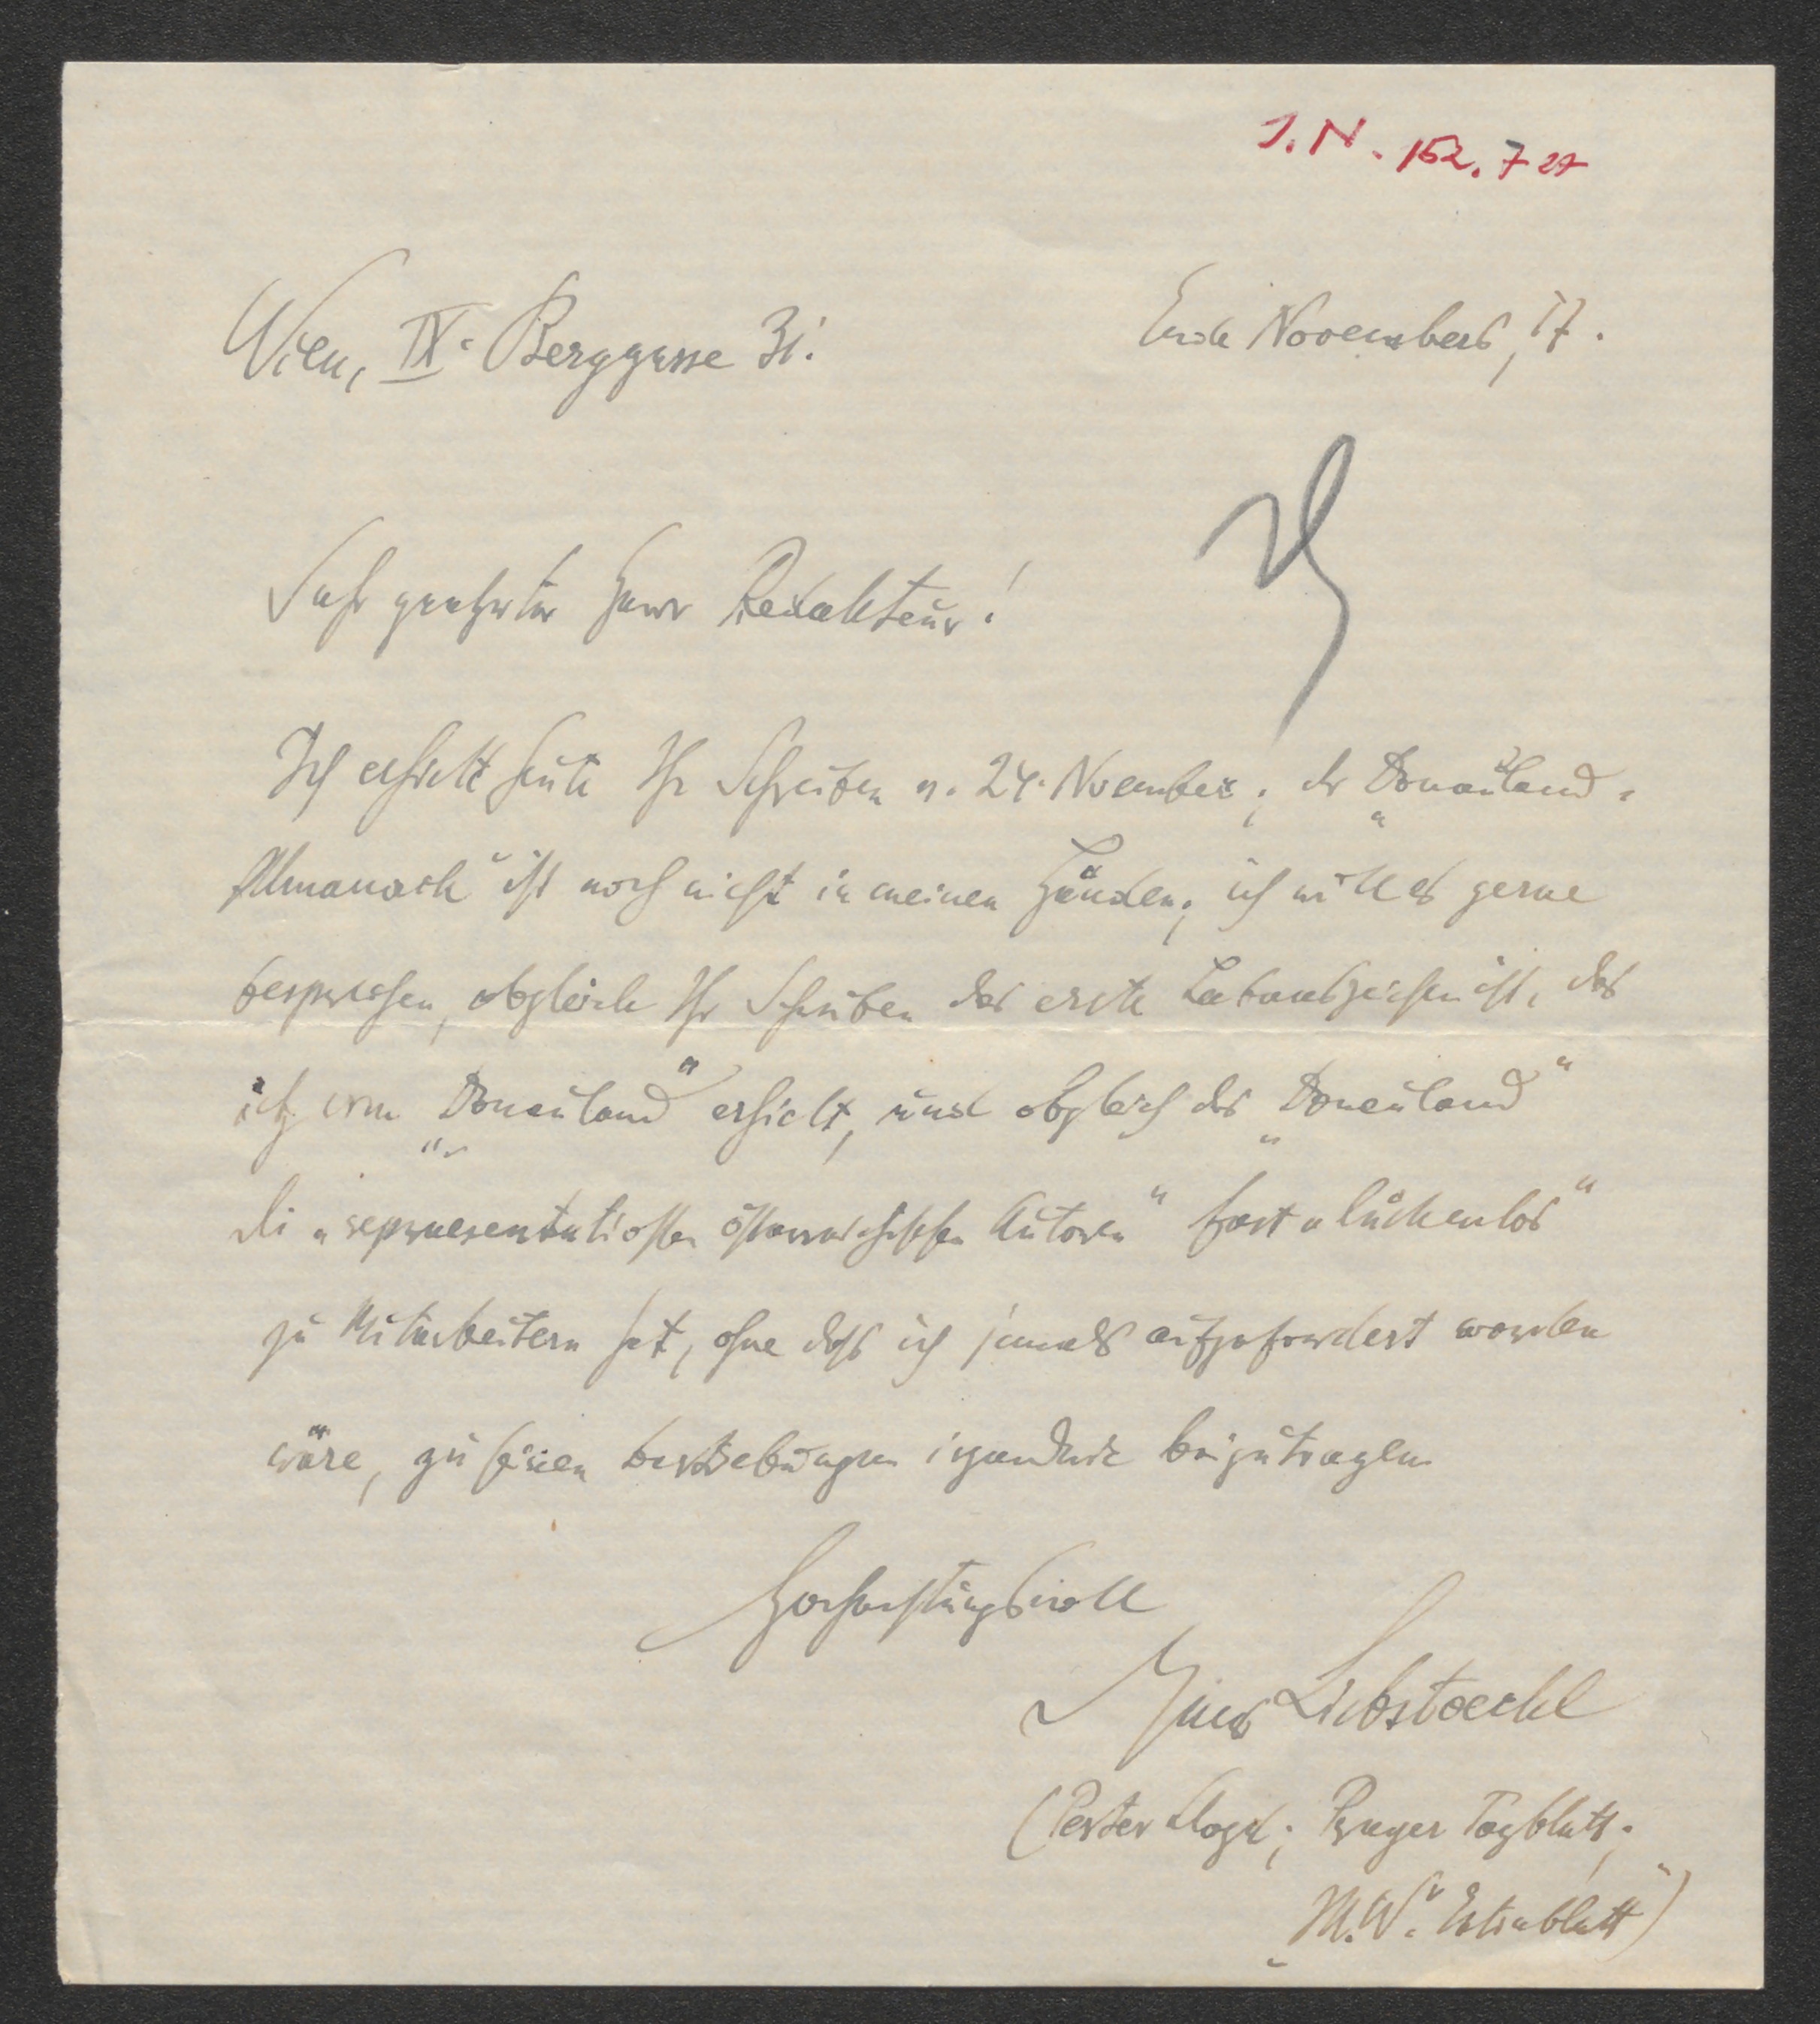 J.N. 152.727
Wien, IX. Berggasse 31.
Ende Novembers, 17.
Sehr geehrter Herr Redakteur!
Ich erhielt heute Ihr Schreiben v. 24. November; der „Donauland-
Almanach" ist noch nicht in meinen Händen; ich will es gerne
besprechen, obgleich Ihr Schreiben das erste Lebenszeichen ist, das
ich vom „Donauland" erhielt, und obgleich das „Donauland"
die „repraesentativsten österreichischen Autoren" fast „lückenlos"
zu Mitarbeitern hat, ohne daß ich jemals aufgefordert worden
wäre, zu seinen Bestrebungen irgendwie beizutragen
Hochachtungsvoll
Hans Liebstoeckl
(Pester Lloyd; Prager Tagblatt;
„M.W. Extrablatt")